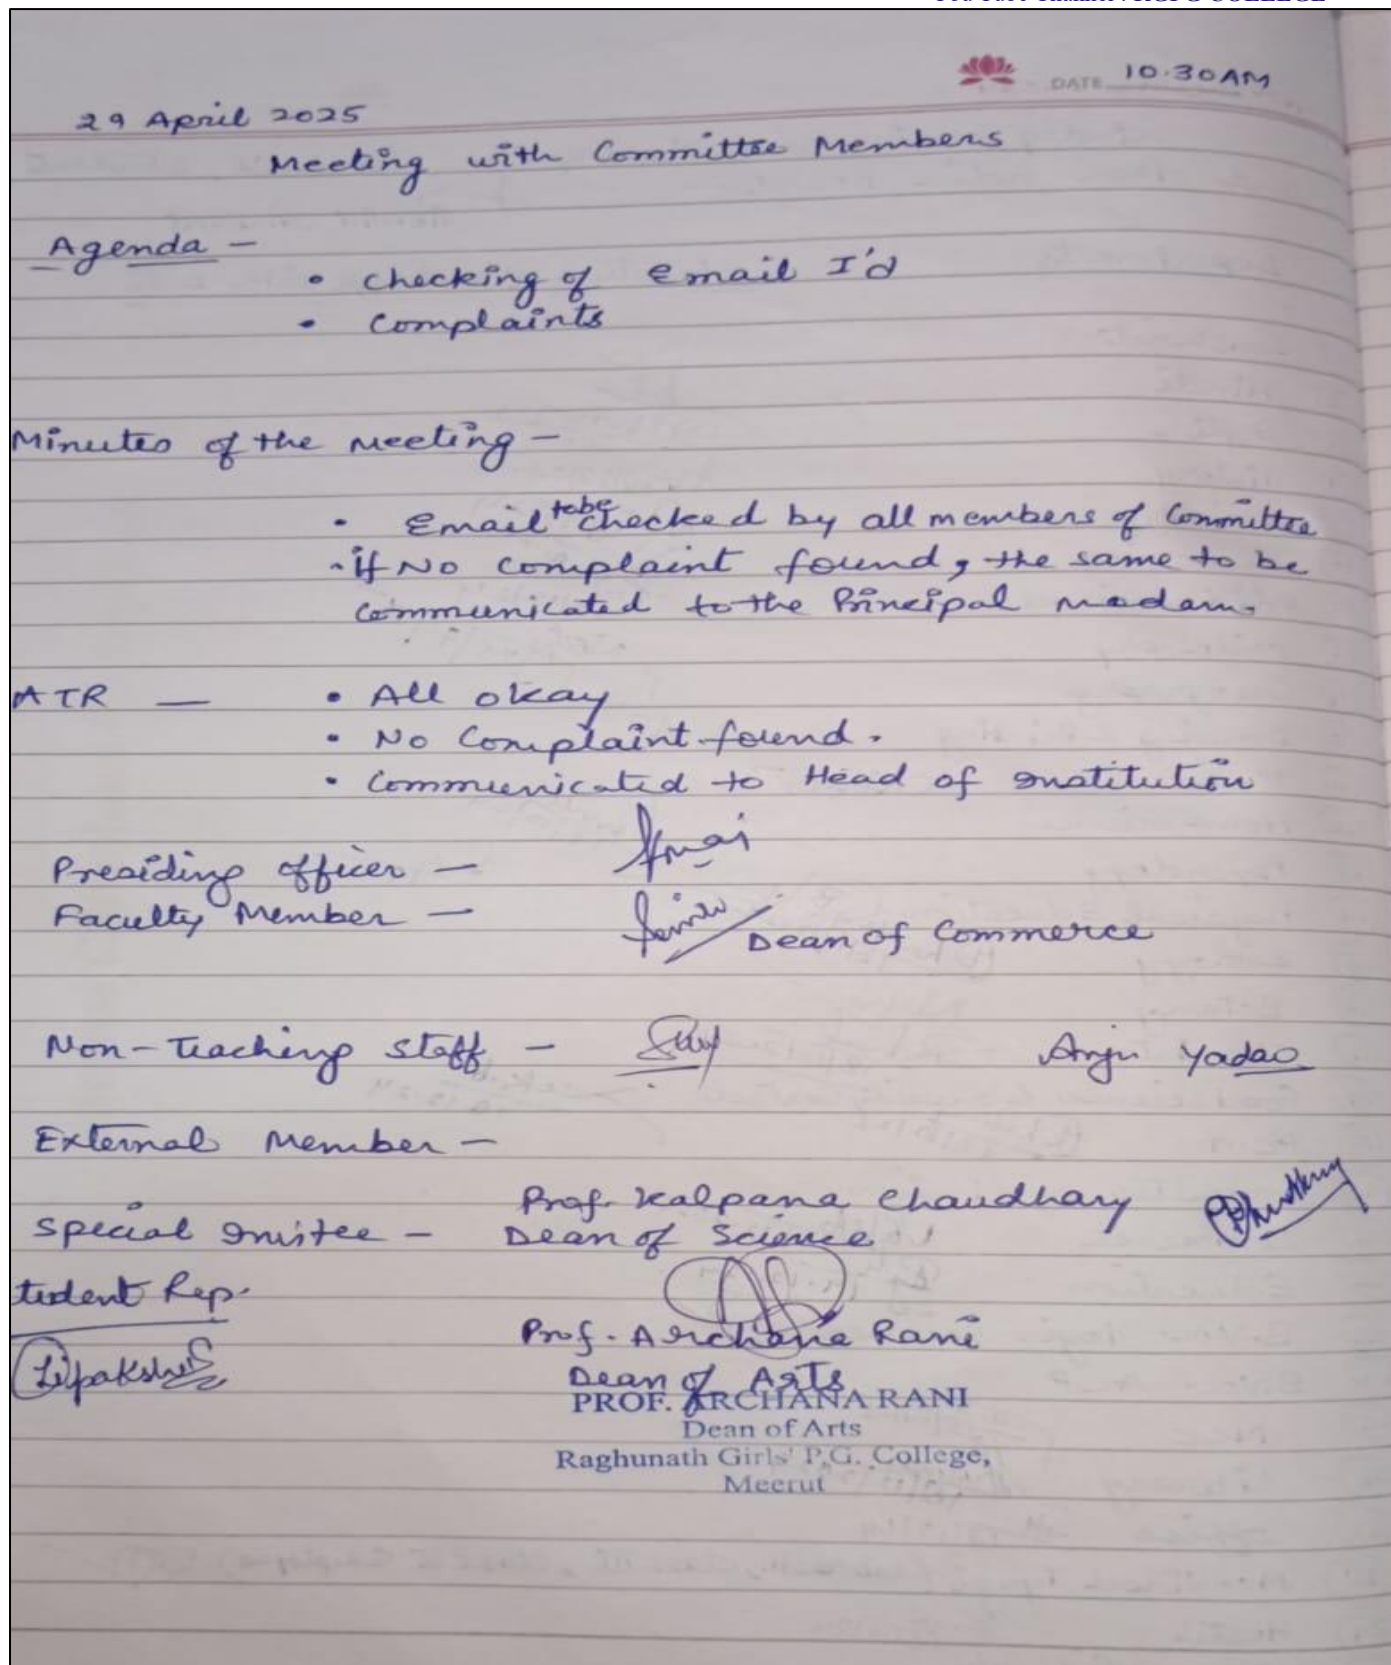 DATE 10.30AM
29 April 2025
Meeting with Committee Members
Agenda -
• checking of Email I'd
• Complaints
Minutes of the Meeting -
• Email to be checked by all members of Committee
• if No complaint found, the same to be
communicated to the Principal Madam.
ATR - • All okay
• No Complaint found.
• Communicated to Head of Institution
Presiding Officer -
Faculty Member - Dean of Commerce
Non-Teaching Staff - Anju Yadav
External Member -
Prof. Kalpana Chaudhary
Special Invitee - Dean of Science
tudent Rep.
Prof. Archana Rani
Dean of Arts
PROF. ARCHANA RANI
Dean of Arts
Raghunath Girls' P.G. College,
Meerut